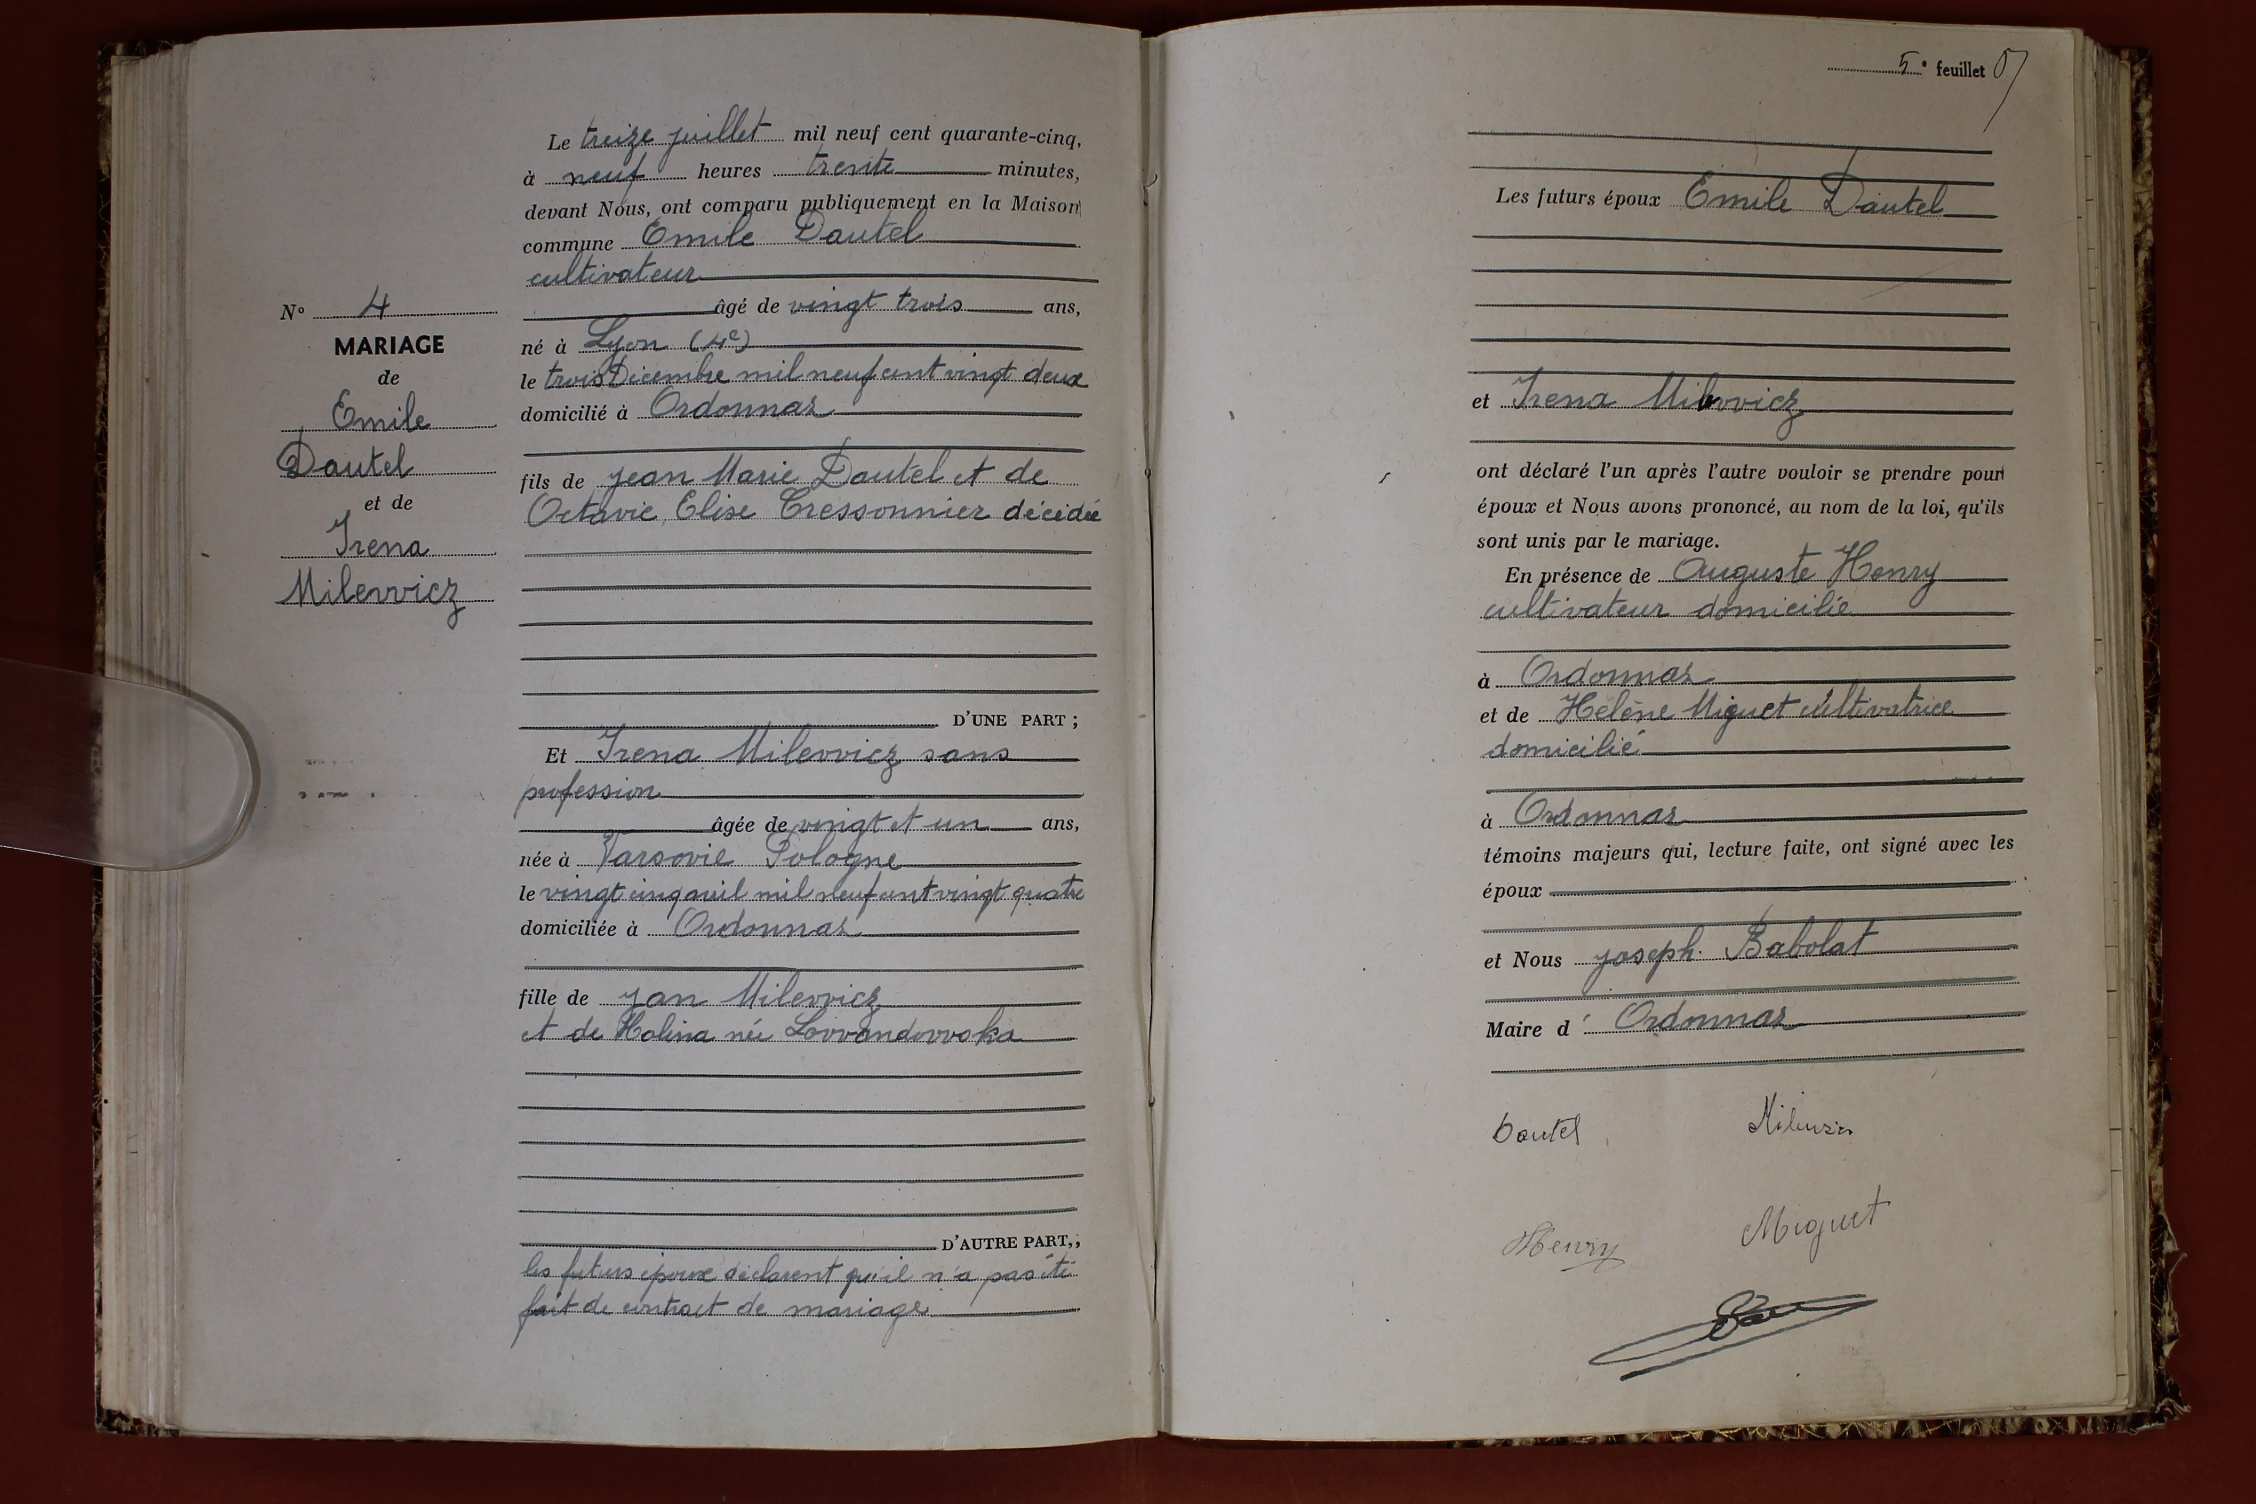 N° 4
MARIAGE
de
Emile
Dautel
et de
Irena
Milewicz
Le treize juillet mil neuf cent quarante-cinq,
à neuf heures trente minutes,
devant Nous, ont comparu publiquement en la Maison
commune Emile Dautel
cultivateur
âgé de vingt trois ans,
né à Lyon (4e)
le trois Décembre mil neuf cent vingt deux
domicilié à Ordonnaz
fils de jean Marie Dautel et de
Octavie, Elise Cressonnier décédée
D'UNE PART ;
Et Irena Milewicz sans
profession
âgée de vingt et un ans,
née à Varsovie Pologne
le vingt cinq avril mil neuf cent vingt quatre
domiciliée à Ordonnaz
fille de jan Milewicz
et de Halina née Lewandowska
D'AUTRE PART, ;
les futurs époux déclarent qu'il n'a pas été
fait de contrat de mariage
5e feuillet
Les futurs époux Emile Dautel
et Irena Milewicz
ont déclaré l'un après l'autre vouloir se prendre pour
époux et Nous avons prononcé, au nom de la loi, qu'ils
sont unis par le mariage.
En présence de Auguste Henry
cultivateur domicilié
à Ordonnaz
et de Hélène Miguet cultivatrice
domicilié
à Ordonnaz
témoins majeurs qui, lecture faite, ont signé avec les
époux
et Nous joseph Babolat
Maire d' Ordonnaz
Dautel
Henry Miguet